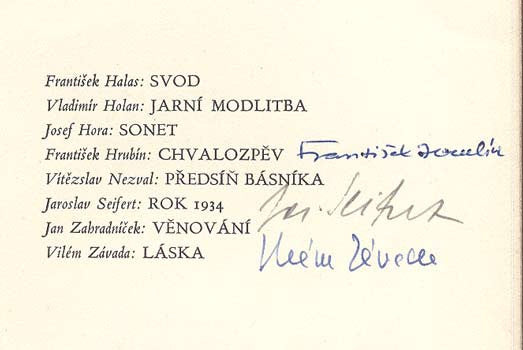 František Halas: SVOD
Vladimír Holan: JARNÍ MODLITBA
Josef Hora: SONET
František Hrubín: CHVALOZPĚV František Hrubín
Vítězslav Nezval: PŘEDSÍŇ BÁSNÍKA
Jaroslav Seifert: ROK 1934 Jar. Seifert
Jan Zahradníček: VĚNOVÁNÍ
Vilém Závada: LÁSKA Vilém Závada